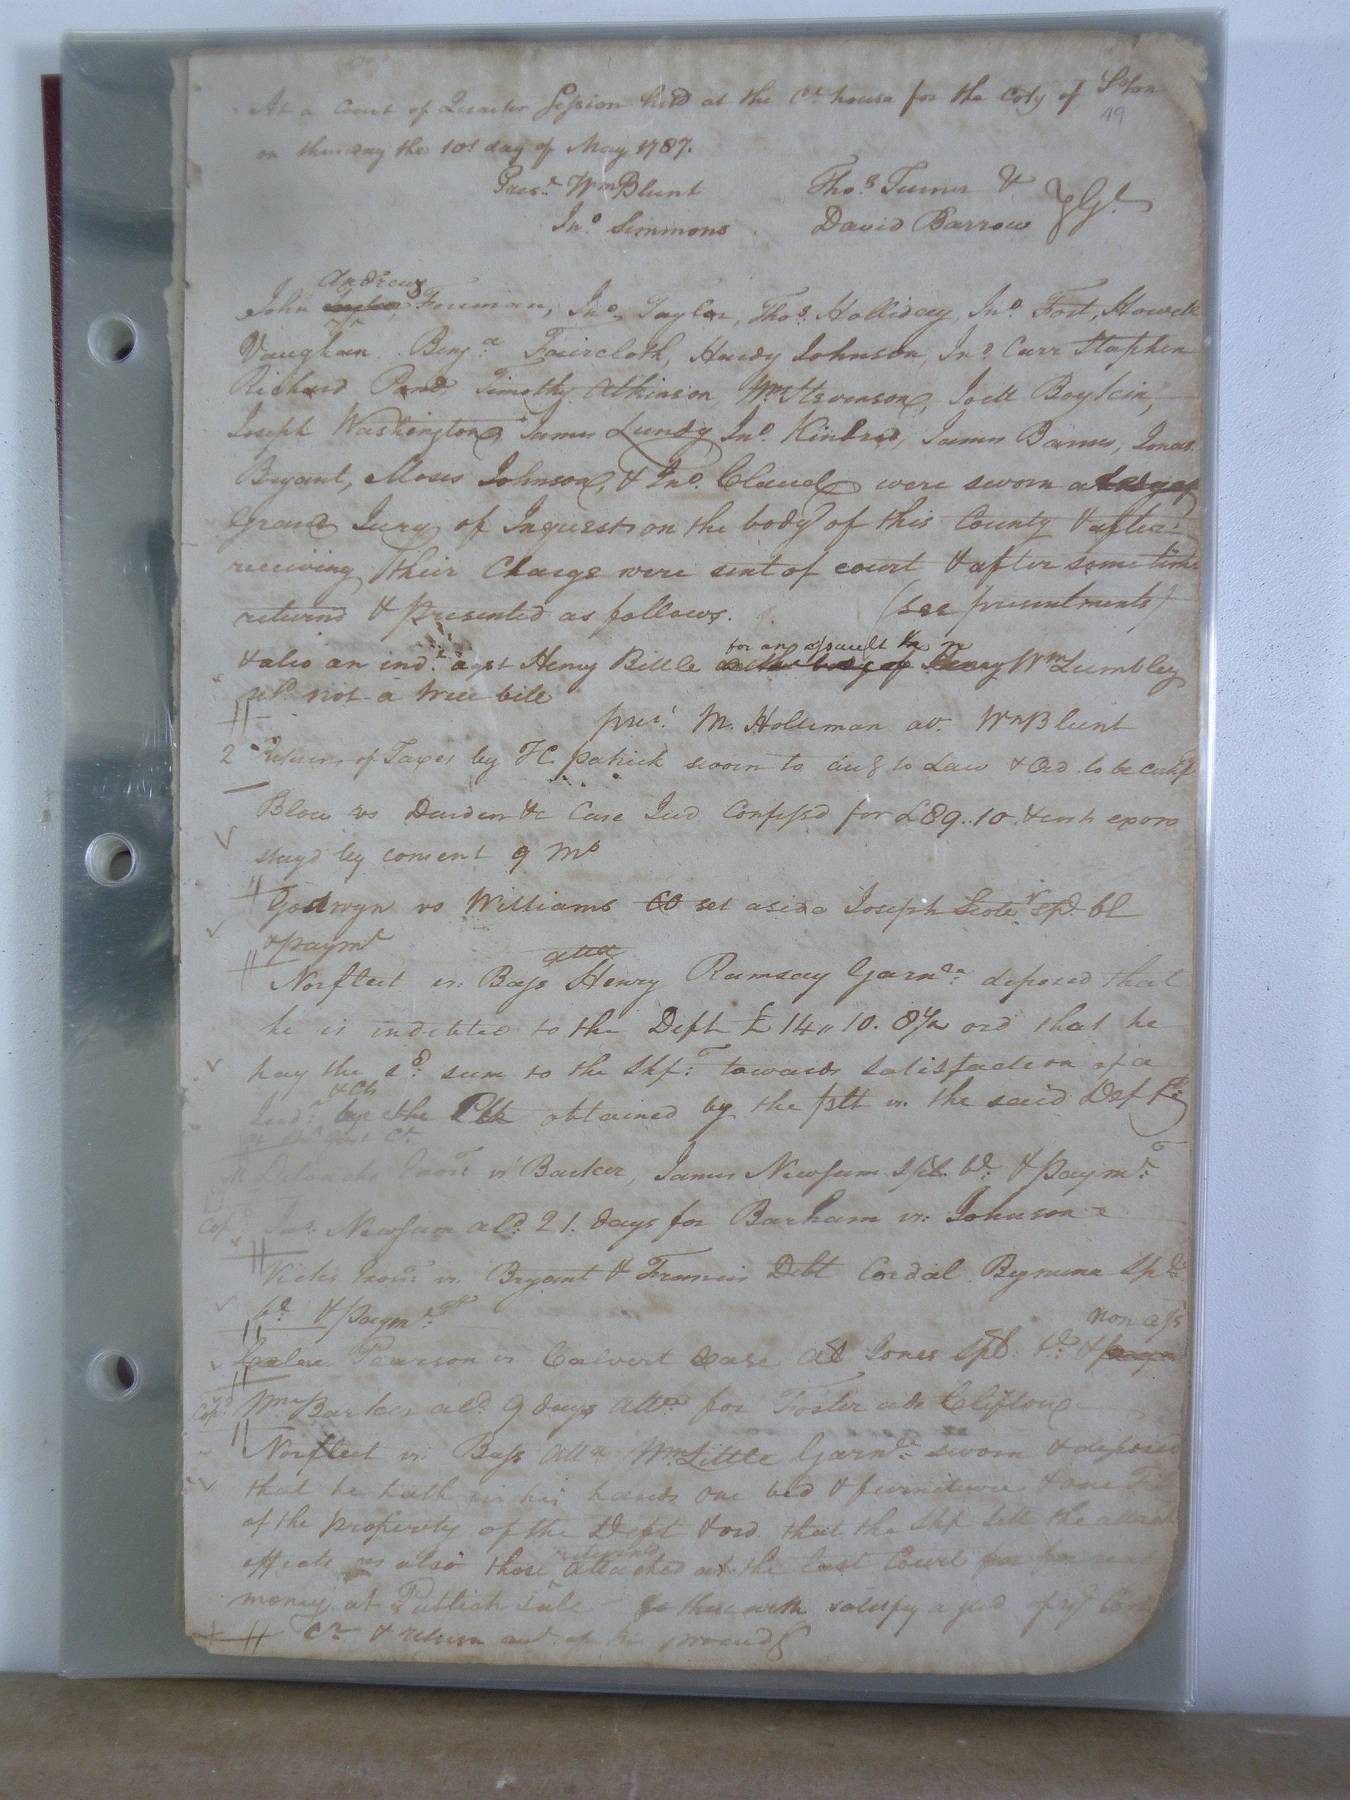 At a Court of Quarter Session held at the Ct house for the Coty of Soton
49
on thursday the 10t day of May 1787.
Prest Wm Blunt Thos Turner &
Jno Simmons David Barrow Gt
Andrews
John Foreman, Jno Taylor, Thos Holliday, Jno Fort, Howell
Vaughan Benja Faircloth, Hardy Johnson, Jno Carr Stephen
Richard Pond, Timothy Atkinson, Wm Stevenson, Joell Boykin,
Joseph Washington, James Lundy Jno Kindred, James Barnes, Jonas
Bryant, Moses Johnson, & Jno Claud were sworn a
Grand Jury of Inquest on the body of this County & after
receiving their Charge were sent of court & after some time
returnd & presented as follows. (see presentments)
for an assault
& also an indt agst Henry Bittle Wm Lumbley
not a true bill
prest M. Holliman av. Wm Blunt
2 Return of Taxes by H. patrick sworn to to Law & Ord. to be
Blow vs Darden &c Case Jud Confess'd for £89..10 & costs exors
stayd by consent 9 Mo
Godwyn vs Williams CO set aside Joseph Scott spl bl
& paymt
atta
Norfleet vs Bass Henry Ramsay Garnee deposed that
he is indebted to the Deft £14,,10. ord that he
pay the sd sum to the Shf towards satisfaction of a
& Cts
Jud the obtained by the plt vs the said Deft
Ct
vs Barker, James Newsum spl bl & paymt
Cop Jas Newsum ald 21. days for Barham vs Johnson
Vicks vs Bryant & Francis Debt Cordal Bynum spl
bl & paymt
non ass
Pearson vs Calvert Case Jones spl bl &
Cop Wm Barker ald 9 days atta for Foster ads Clifton
Norfleet vs Bass atta Wm Little Garnee sworn & deposed
that he hath in his hands one bed & furniture & one
of the property of the Deft & ord that the Shf sell the
returnd
effects as also those attached at the last Court for
money at Publick Sale satisfy a jud
Ct & return